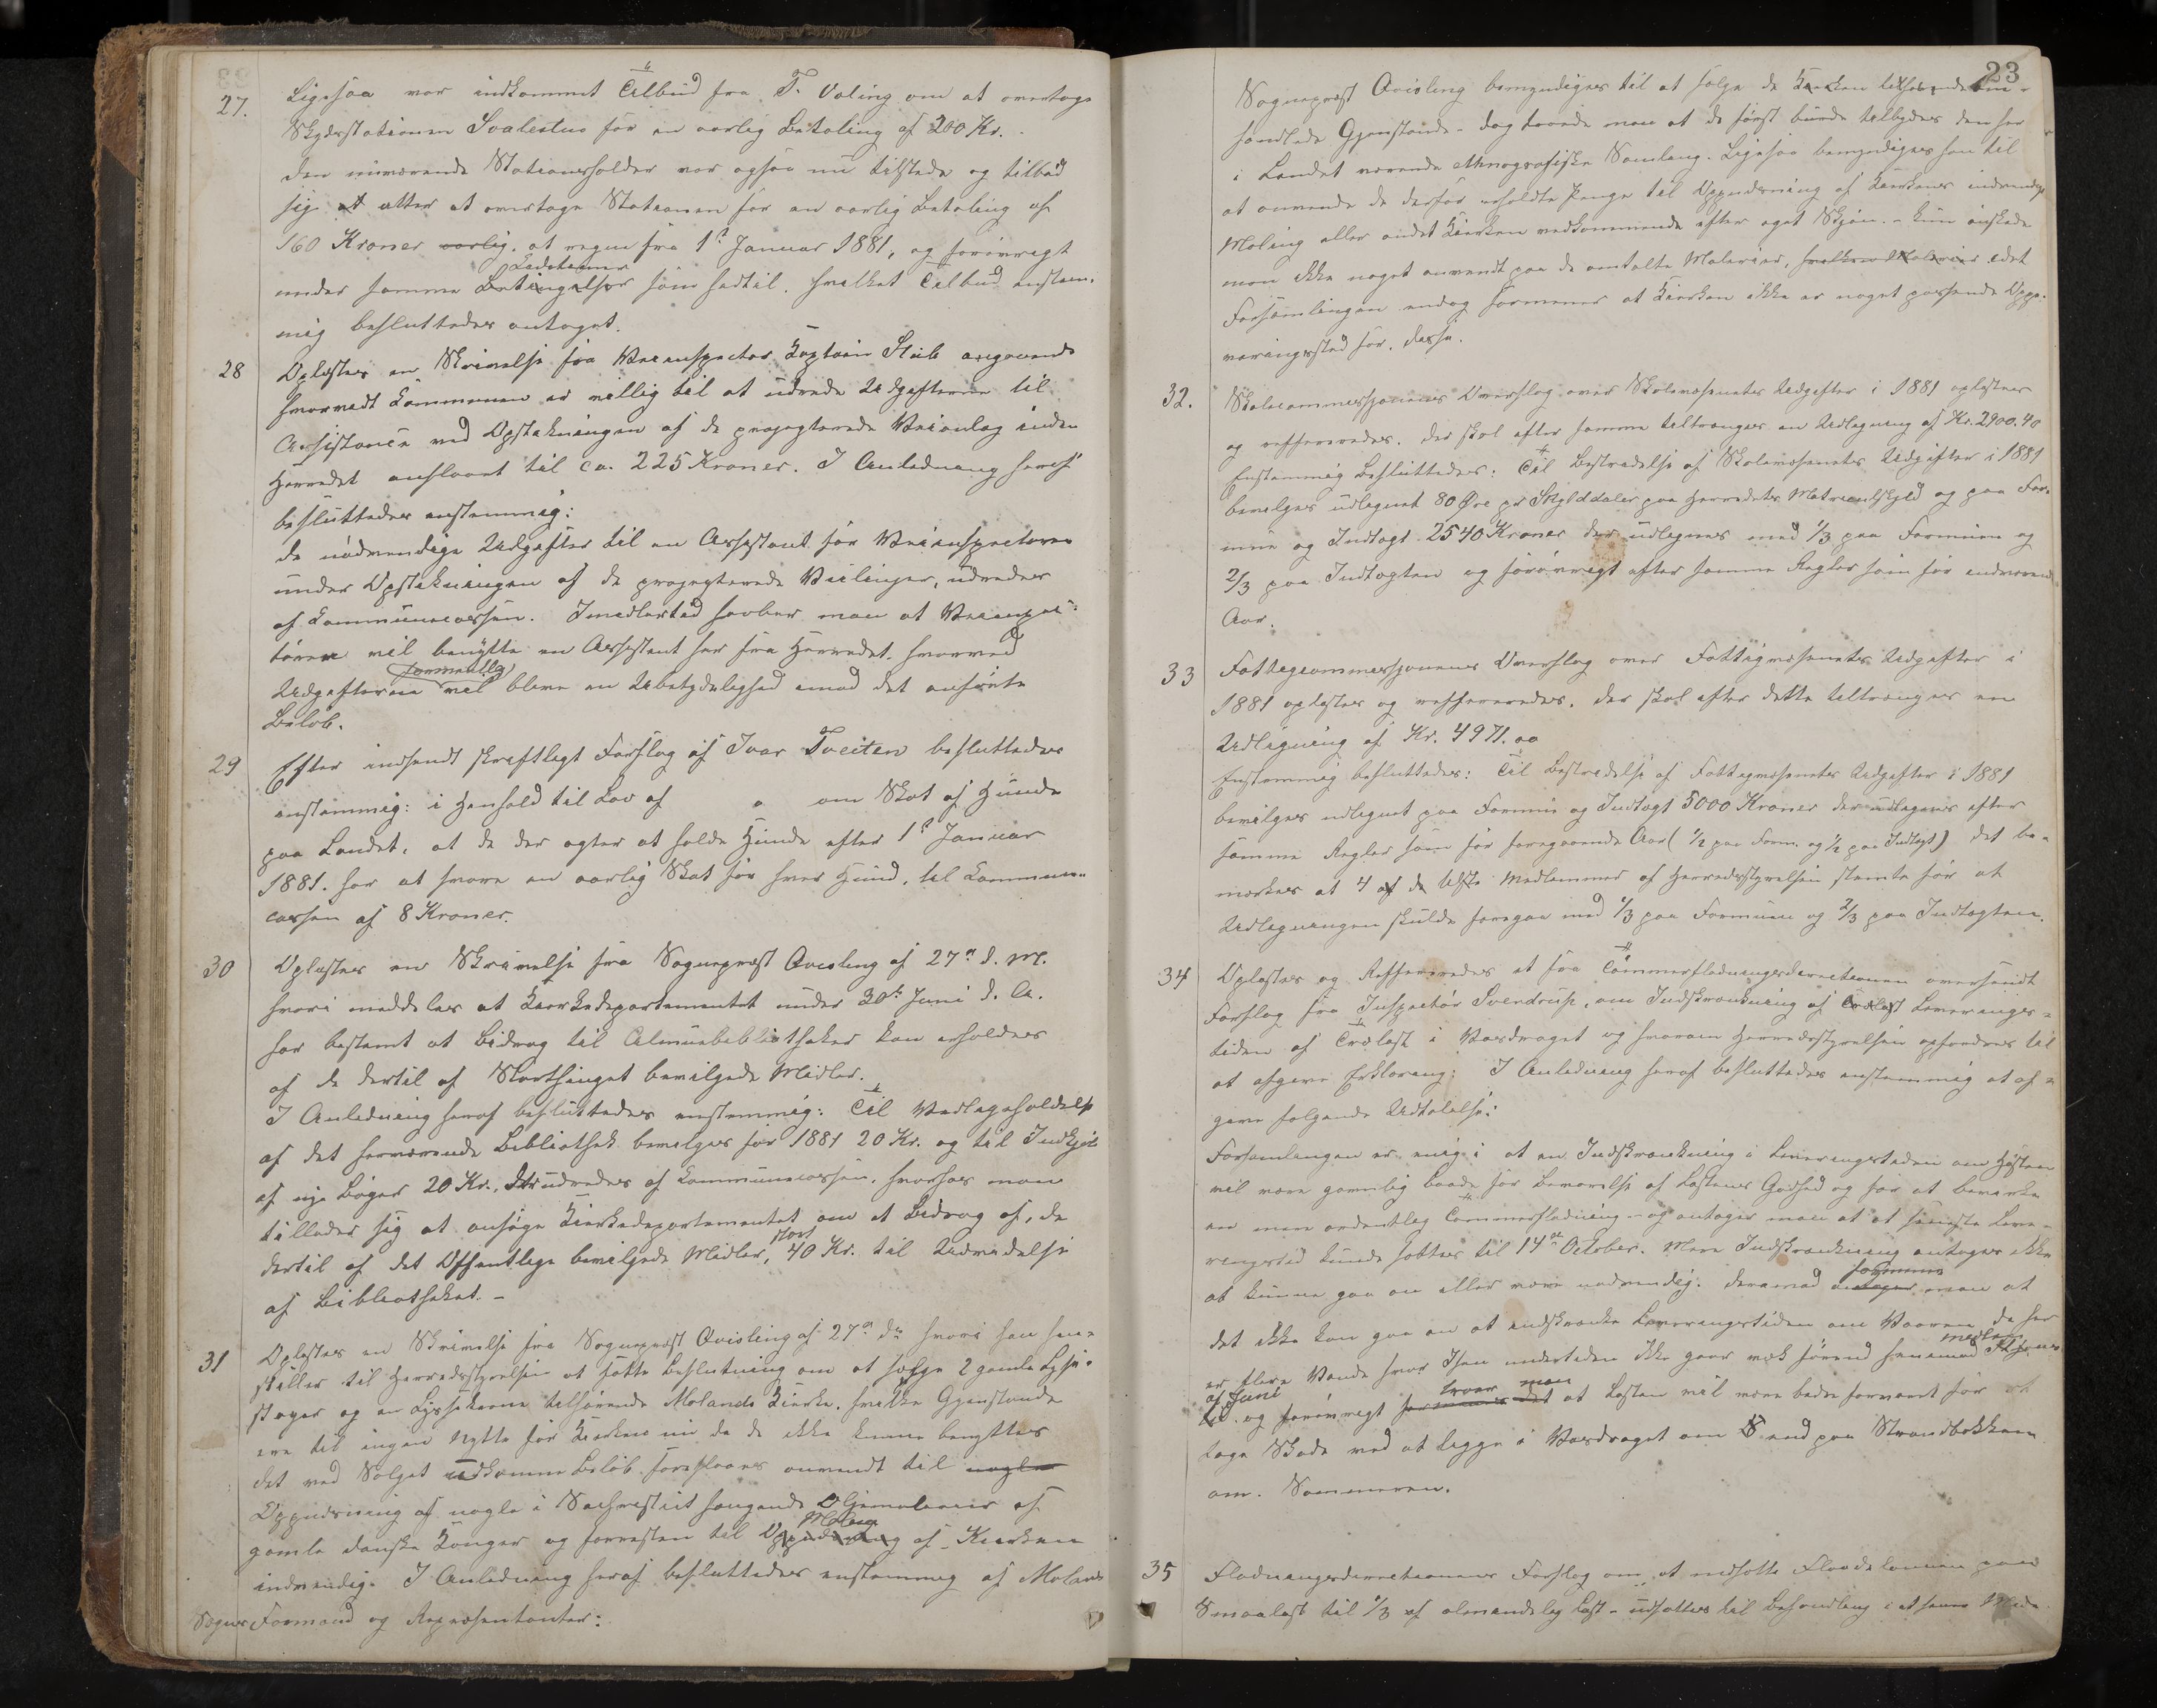 27. Ligesaa var indkommet Tilbud fra T. Valing om at overtage
Skydsstationen Svalestuo for en aarlig Betaling af 200 Kr.
Den nuværende Stationsholder var ogsaa nu tilstede og tilbød
sig at atter at overtage Stationen for en aarlig Betaling af
160 Kroner aarlig. at regne fra 1ste Januar 1881, og forøvrigt
under samme Betingelser som hidtil. hvilket Tilbud enstem-
mig besluttedes antaget.
28 Oplæstes en Skrivelse fra Veiinspector Kaptain Stub angaaende
hvorvidt Kommunen er villig til at udrede Udgifterne til
Assistance ved Opstikningen af de projegterede Veianlæg inden
Herredet anslaaet til ca. 225 Kroner. I Anledning heraf
besluttedes enstemmig:
de nødvendige Udgifter til en Assistent for Veiinspectøren
under Opstikningen af de projegterede Veilinjer, udredes
af Kommunecassen. Imedlertid haaber man at Veiinspec-
tøren vil benytte en Assistent her fra Herredet. hvorved
formentlig
Udgifterne vil blive en Ubetydelighed imod det ansatte
Beløb.
29 Efter indsendt skriftligt Forslag af Ivar Tveiten besluttedes
enstemmig: i Henhold til Lov af om Skat af Hunde
paa Landet, at de der agter at holde Hunde efter 1ste Januar
1881. har at svare en aarlig Skat for hver Hund, til Kommune-
cassen af 8 Kroner.
30 Oplæstes en Skrivelse fra Sognepræst Qvisling af 27de d. M.
hvori meddeles at Kirkedepartementet under 30te Juni d. A.
har bestemt at Bidrag til Almuebibliotheker kan erholdes
af de dertil af Storthinget bevilgede Midler.
I Anledning heraf besluttedes enstemmig: Til Vedligeholdelse
af det herværende Bibliothek bevilges for 1881 20 Kr. og til Indkjøb
af nye Bøger 20 Kr., der udredes af Kommunecassen, hvorhos man
tillader sig at ansøge Kirkedepartementet om et Bidrag af, de
stort
dertil af det Offentlige bevilgede Midler, 40 Kr. til Udvidelse
af Bibliotheket. -
31 Oplæstes en Skrivelse fra Sognepræst Qvisling af 27de ds hvori han hen-
stiller til Herredsstyrelsen at fatte Beslutning om at sælge 2 gamle Lyse-
stager og en Lysekrone tilhørende Molands Kirke, hvilke Gjenstande
ere til ingen Nytte for Kirken nu da de ikke kunne benyttes
det ved Salget udkomne Beløb foreslaaes anvendt til nogle
Oppudsning af nogle i Sachristiet hængende Oljemalerier af
Maling
gamle danske Konger og forresten til Oppudsning af Kirken
indvendig. I Anledning heraf besluttedes enstemmig af Molands
Sogns Formænd og Repræsentanter:
23
Sognepræst Qvisling bemyndiges til at sælge de Kirken tilhørende om-
handlede Gjenstande - dog troede man at de først burde tilbydes den her
i Landet værende ethnografiske Samling. Ligesaa bemyndiges han til
at anvende de derfor erholdte Penge til Oppudsning af Kirkens indvendige
Maling eller andet Kirken vedkommende efter eget Skjøn. - kun ønskede
man ikke noget anvendt paa de omtalte Malerier, hvilke Malerier idet
Forsamlingen endog formener at Kirken ikke er noget passende Oppe-
varingssted for. disse.
32. Skolecommissjonens Overslag over Skolevæsenets Udgifter i 1881 oplæstes
og reffereredes. der skal efter samme tiltrænges en Udligning af Kr. 2900.40
Enstemmig besluttedes: Til Bestridelse af Skolevæsenets Udgifter i 1881
bevilges udlignet 80 Øre pr Skylddaler paa Herredets Matrienlskyld og paa For-
mue og Indtægt 2540 Kroner der udlignes med 1/3 paa Formuen og
2/3 paa Indtægten og forøvrigt efter samme Regler som for indværende
Aar.
33 Fattigcommissjonens Overslag over Fattigvæsenets Udgifter i
1881 oplæstes og reffereredes. der skal efter dette tiltrænges en
Udligning af Kr. 4971.00
Enstemmig besluttedes: Til Bestridelse af Fattigvæsenets Udgifter i 1881
bevilges udlignet paa Formue og Indtægt 5000 Kroner der udlignes efter
samme Regler som for foregaaende Aar (1/2 paa Form. og 1/2 paa Indtægt) det be-
mærkes at 4 af de tilste Medlemmer af Herredsstyrelsen stemte for at
Udligningen skulde foregaa med 1/3 paa Formuen og 2/3 paa Indtægten.
34 Oplæstes og Reffereredes et fra Tømmerflødningsdirectionen oversendt
Forslag fra Inspectør Svendrup, om Indskrænkning af Trælast Leverings-
tiden af Trælast i Vasdraget og hvorom Herredsstyrelsen opfordres til
at afgive Erklæring: I Anledning heraf besluttedes enstemmig at af-
give følgende Udtalelse:
Forsamlingen er enig i at en Indskrænkning i Leveringstiden om Høsten
vil være gavnlig baade for Bevarelse af Lastens Godhed og for at bevirke
en mere ordentlig Tømmerflødning - og antager man at et seneste Leve-
ringstid kunde sættes til 14de October. Mere Indskrænkning antages ikke
formener
at kunne gaa an eller være nødvendig. derimod antager man at
det ikke kan gaa an at indskrænke Leveringstiden om Vaaren da her
er flere Vande hvor Isen undertiden ikke gaar væk førend henimod St Hans
af Juni troer man
tid. og forøvrigt formenes det at Lasten vil være bedre forvaret for at
tage Skade ved at ligge i Vasdraget om end paa Strandbakken
om Sommeren.
35 Flødningsdirectionens Forslag om at nedsætte Flødelønnen paa
Smaalast til 1/3 af almindelig Last - udsættes til Behandling i et senere Møde.